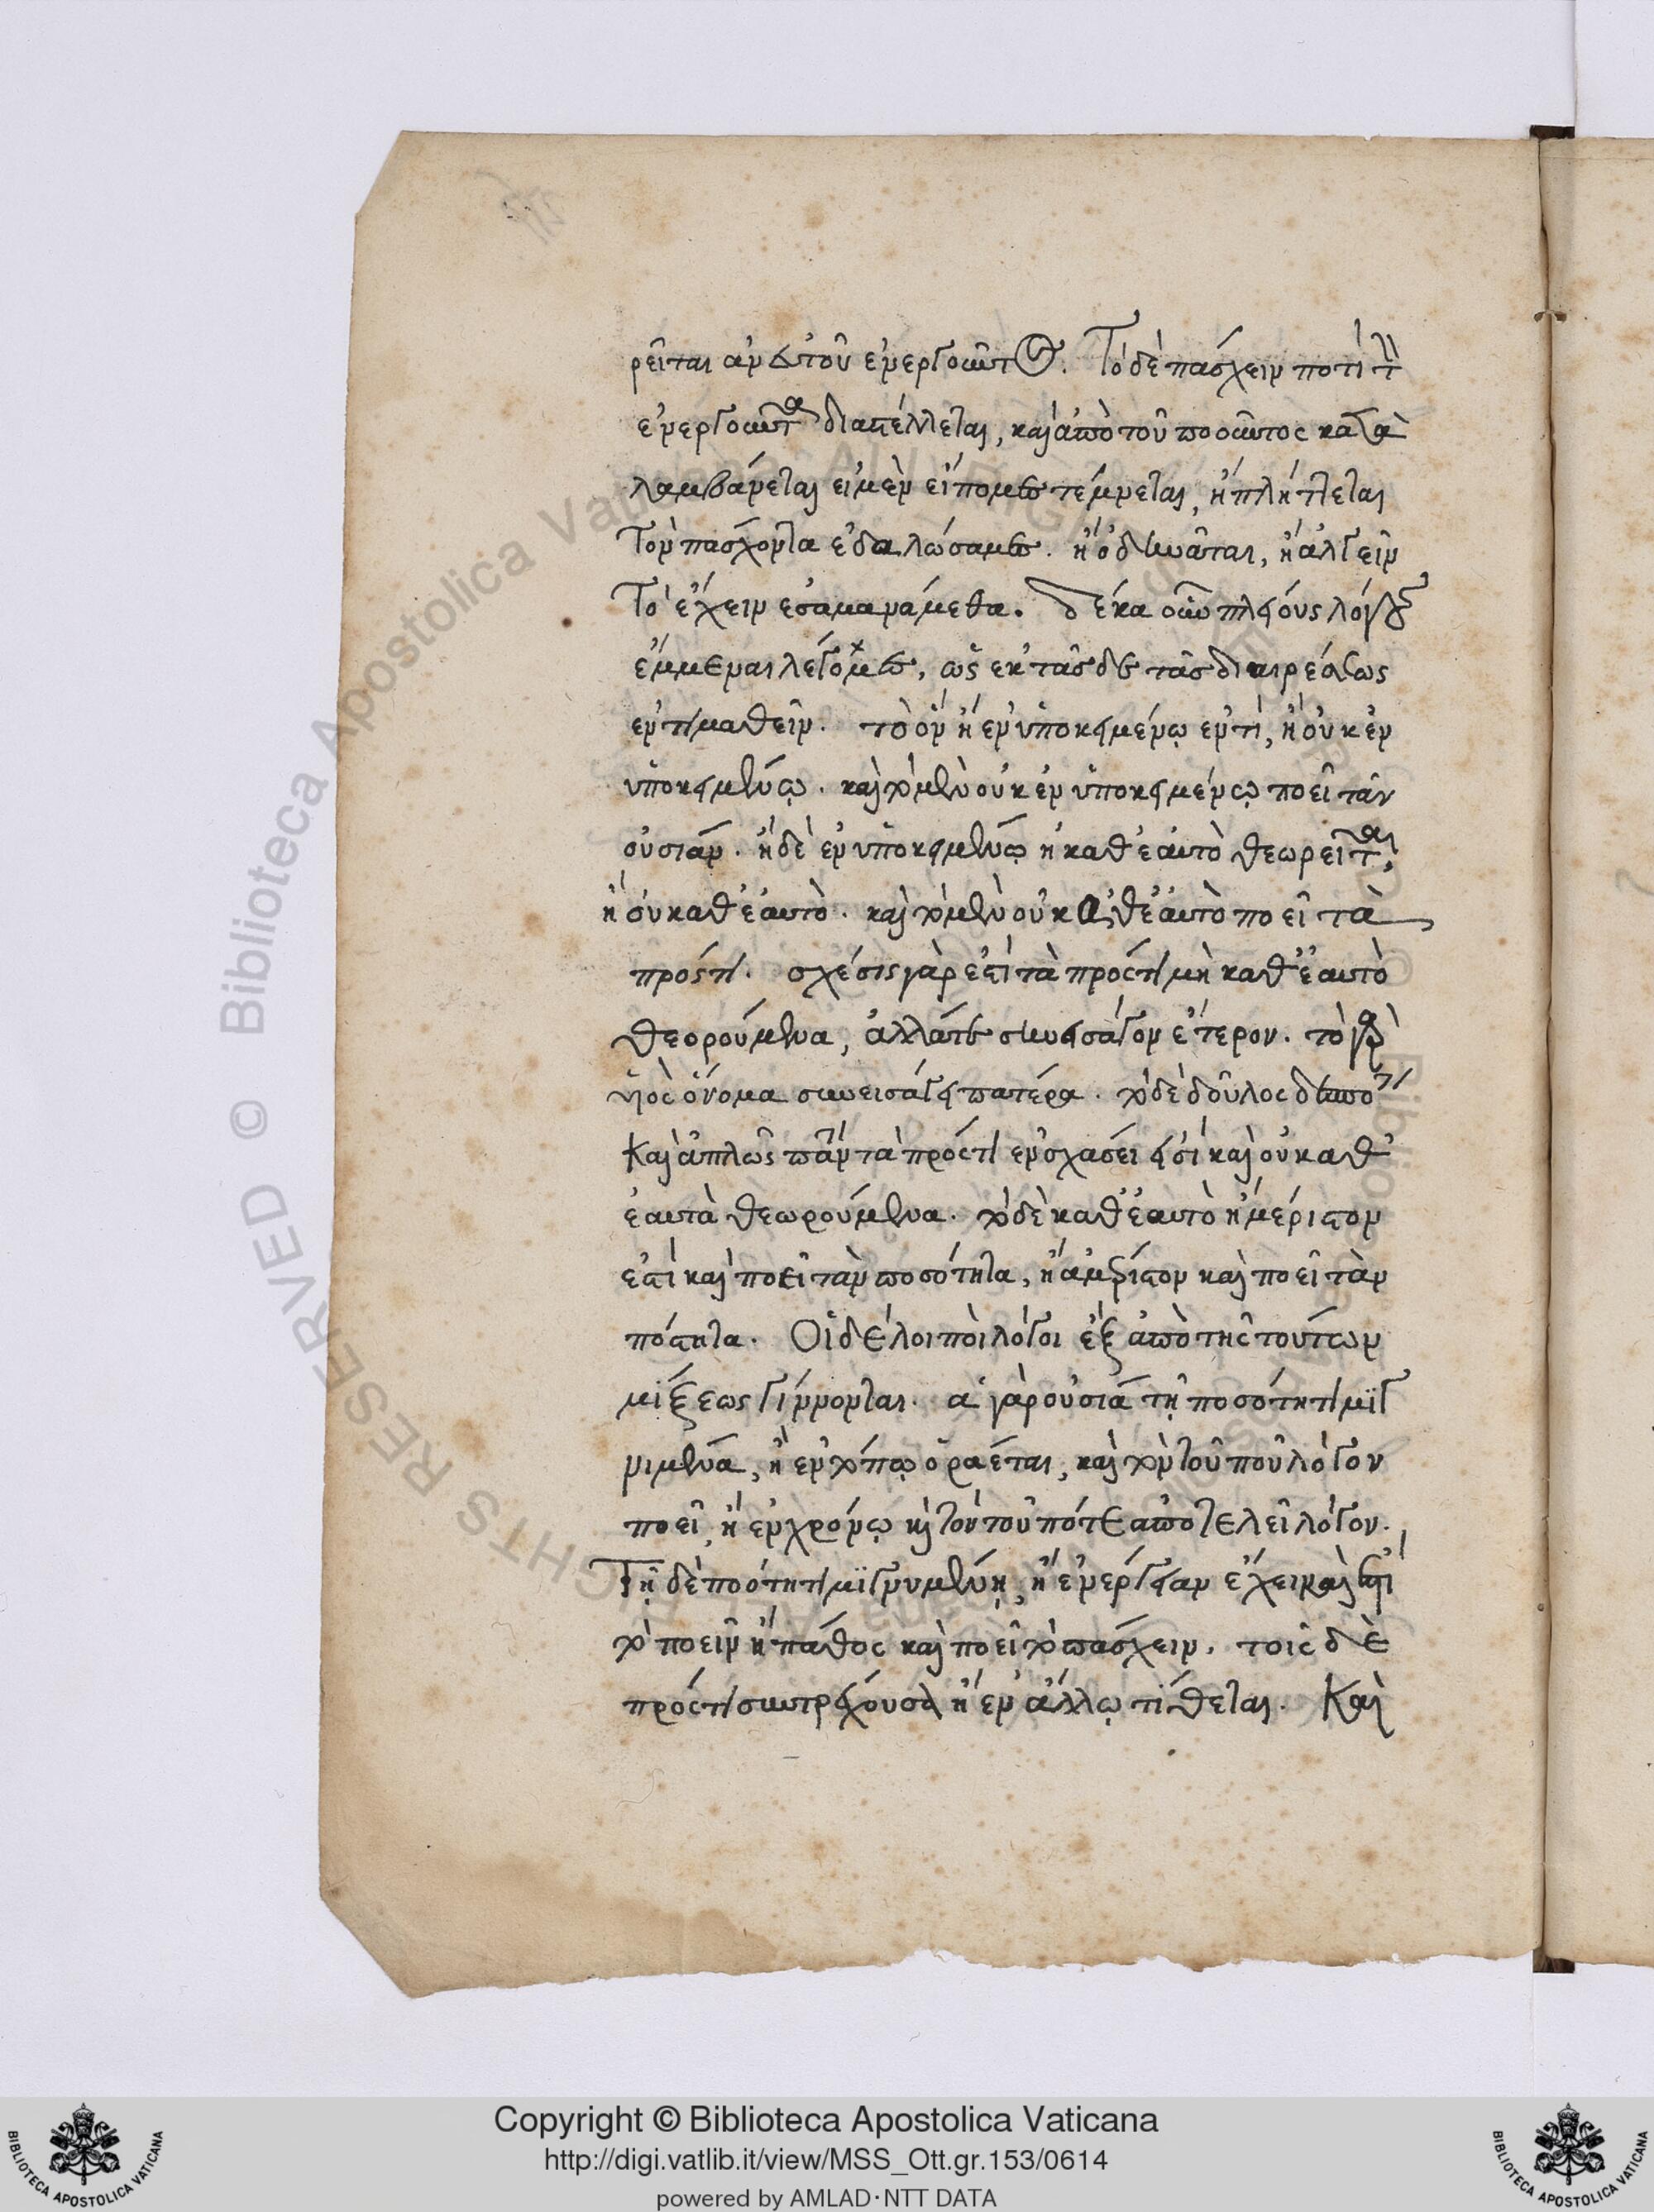 ρεῖται ἀν ἐκ τοῦ ἐνεργοῦντος. Τὸ δὲ πάσχειν ποτὶ τ
ἐνεργοῦντα διαστέλλεται, καὶ ἀπὸ τοῦ ποοῦντος κατα
λαμβάνεται εἰ μὲν εἴπομεν τέμνεται, ἢ πλήττεται
Τὸν πάσχοντα ἐδαλώσαμεν. ἢ ὀδυνᾶται, ἢ ἀλγεῖν
Τὸ ἔχειν ἐσαμανάμεθα. Δέκα οὖν πλείους λόγους
ἔμμεναι λέγομεν, ὡς ἐκ τᾶσδε τᾶς διαιρέσεως
ἐντὶ μαθεῖν. τὸ ὂν ἢ ἐν ὑποκειμένῳ ἐντὶ, ἢ οὐκ ἐν
ὑποκειμένῳ. καὶ τὸ μὲν οὐκ ἐν ὑποκειμένῳ ποεῖ τὰν
οὐσίαν. ἢ δὲ ἐν ὑποκειμένῳ ἢ καθ' ἑαυτὸ θεωρεῖται,
ἢ οὐ καθ' ἑαυτὸ. καὶ τὸ μὲν οὐ καθ' ἑαυτὸ ποεῖ τὰ
πρός τι. σχέσις γάρ ἐστι τὰ πρός τι μὴ καθ' ἑαυτὸ
θεορούμενα, ἀλλά τε συνεισάγον ἕτερον. τὸ γὰρ
υἱὸς ὄνομα συνεισάγει πατέρα. τὸ δὲ δοῦλος δεσπότ
Καὶ ἁπλῶς πάντα τὰ πρός τι ἐν σχασέι εἰσὶ καὶ οὐ καθ'
ἑαυτὰ θεωρούμενα. τὸ δὲ καθ' ἑαυτὸ ἢ μέριστον
ἐστὶ καὶ ποεῖ τὰν ποσότητα, ἢ ἀμέριστον καὶ ποεῖ τὰν
πόστητα. Οἱ δὲ λοιποὶ λόγοι ἓξ ἀπὸ τῆς τούτων
μίξεως γίννονται. ἁ γὰρ οὐσία τῇ ποσότητι μιγ
νιμένα, ἢ ἐν τόπῳ ὁραέται, καὶ τὸν τοῦ ποῦ λόγον
ποεῖ, ἢ ἐν χρόνῳ καὶ τὸν τοῦ πότε ἀποτελεῖ λόγον.
Τῇ δὲ ποότητι μιγνυμένη, ἢ ἐνέργειαν ἔχει καὶ ἐστι
τὸ ποεῖν ἢ πάθος καὶ ποεῖ τὸ πάσχειν. τοῖς δὲ
πρός τι συντρέχουσα ἢ ἐν ἄλλῳ τίθεται. Καὶ
Copyright © Biblioteca Apostolica Vaticana
http://digi.vatlib.it/view/MSS_Ott.gr.153/0614
powered by AMLAD·NTT DATA